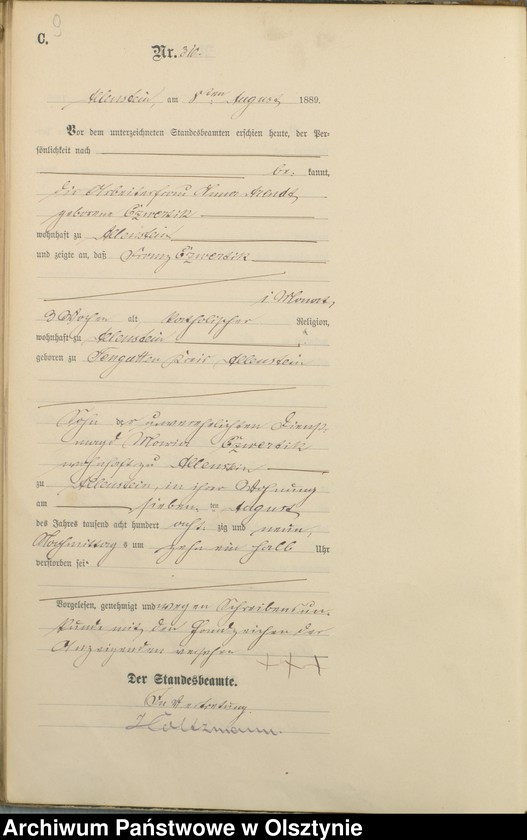 C. 9
Nr. 310.
Allenstein, am 8ten August 1889.
Vor dem unterzeichneten Standesbeamten erschien heute, der Per-
sönlichkeit nach
be kannt,
die Arbeiterfrau Anna Arendt,
geborene Czwertik
wohnhaft zu Allenstein
und zeigte an, daß Franz Czwertik
1 Monat,
3 Wochen alt katholischer Religion,
wohnhaft zu Allenstein
geboren zu Kreis Allenstein
Sohn der unverehelichten Dienst-
magd Maria Czwertik
wohnhaft zu Allenstein
zu Allenstein, in ihrer Wohnung
am sieben ten August
des Jahres tausend acht hundert acht zig und neun,
Nachmittags um zehn ein halb Uhr
verstorben sei
Vorgelesen, genehmigt und wegen Schreibensun-
kunde mit den Handzeichen der
Anzeigenden versehen
+++
Der Standesbeamte.
In Vertretung.
Holtzmann.
Archiwum Państwowe w Olsztynie